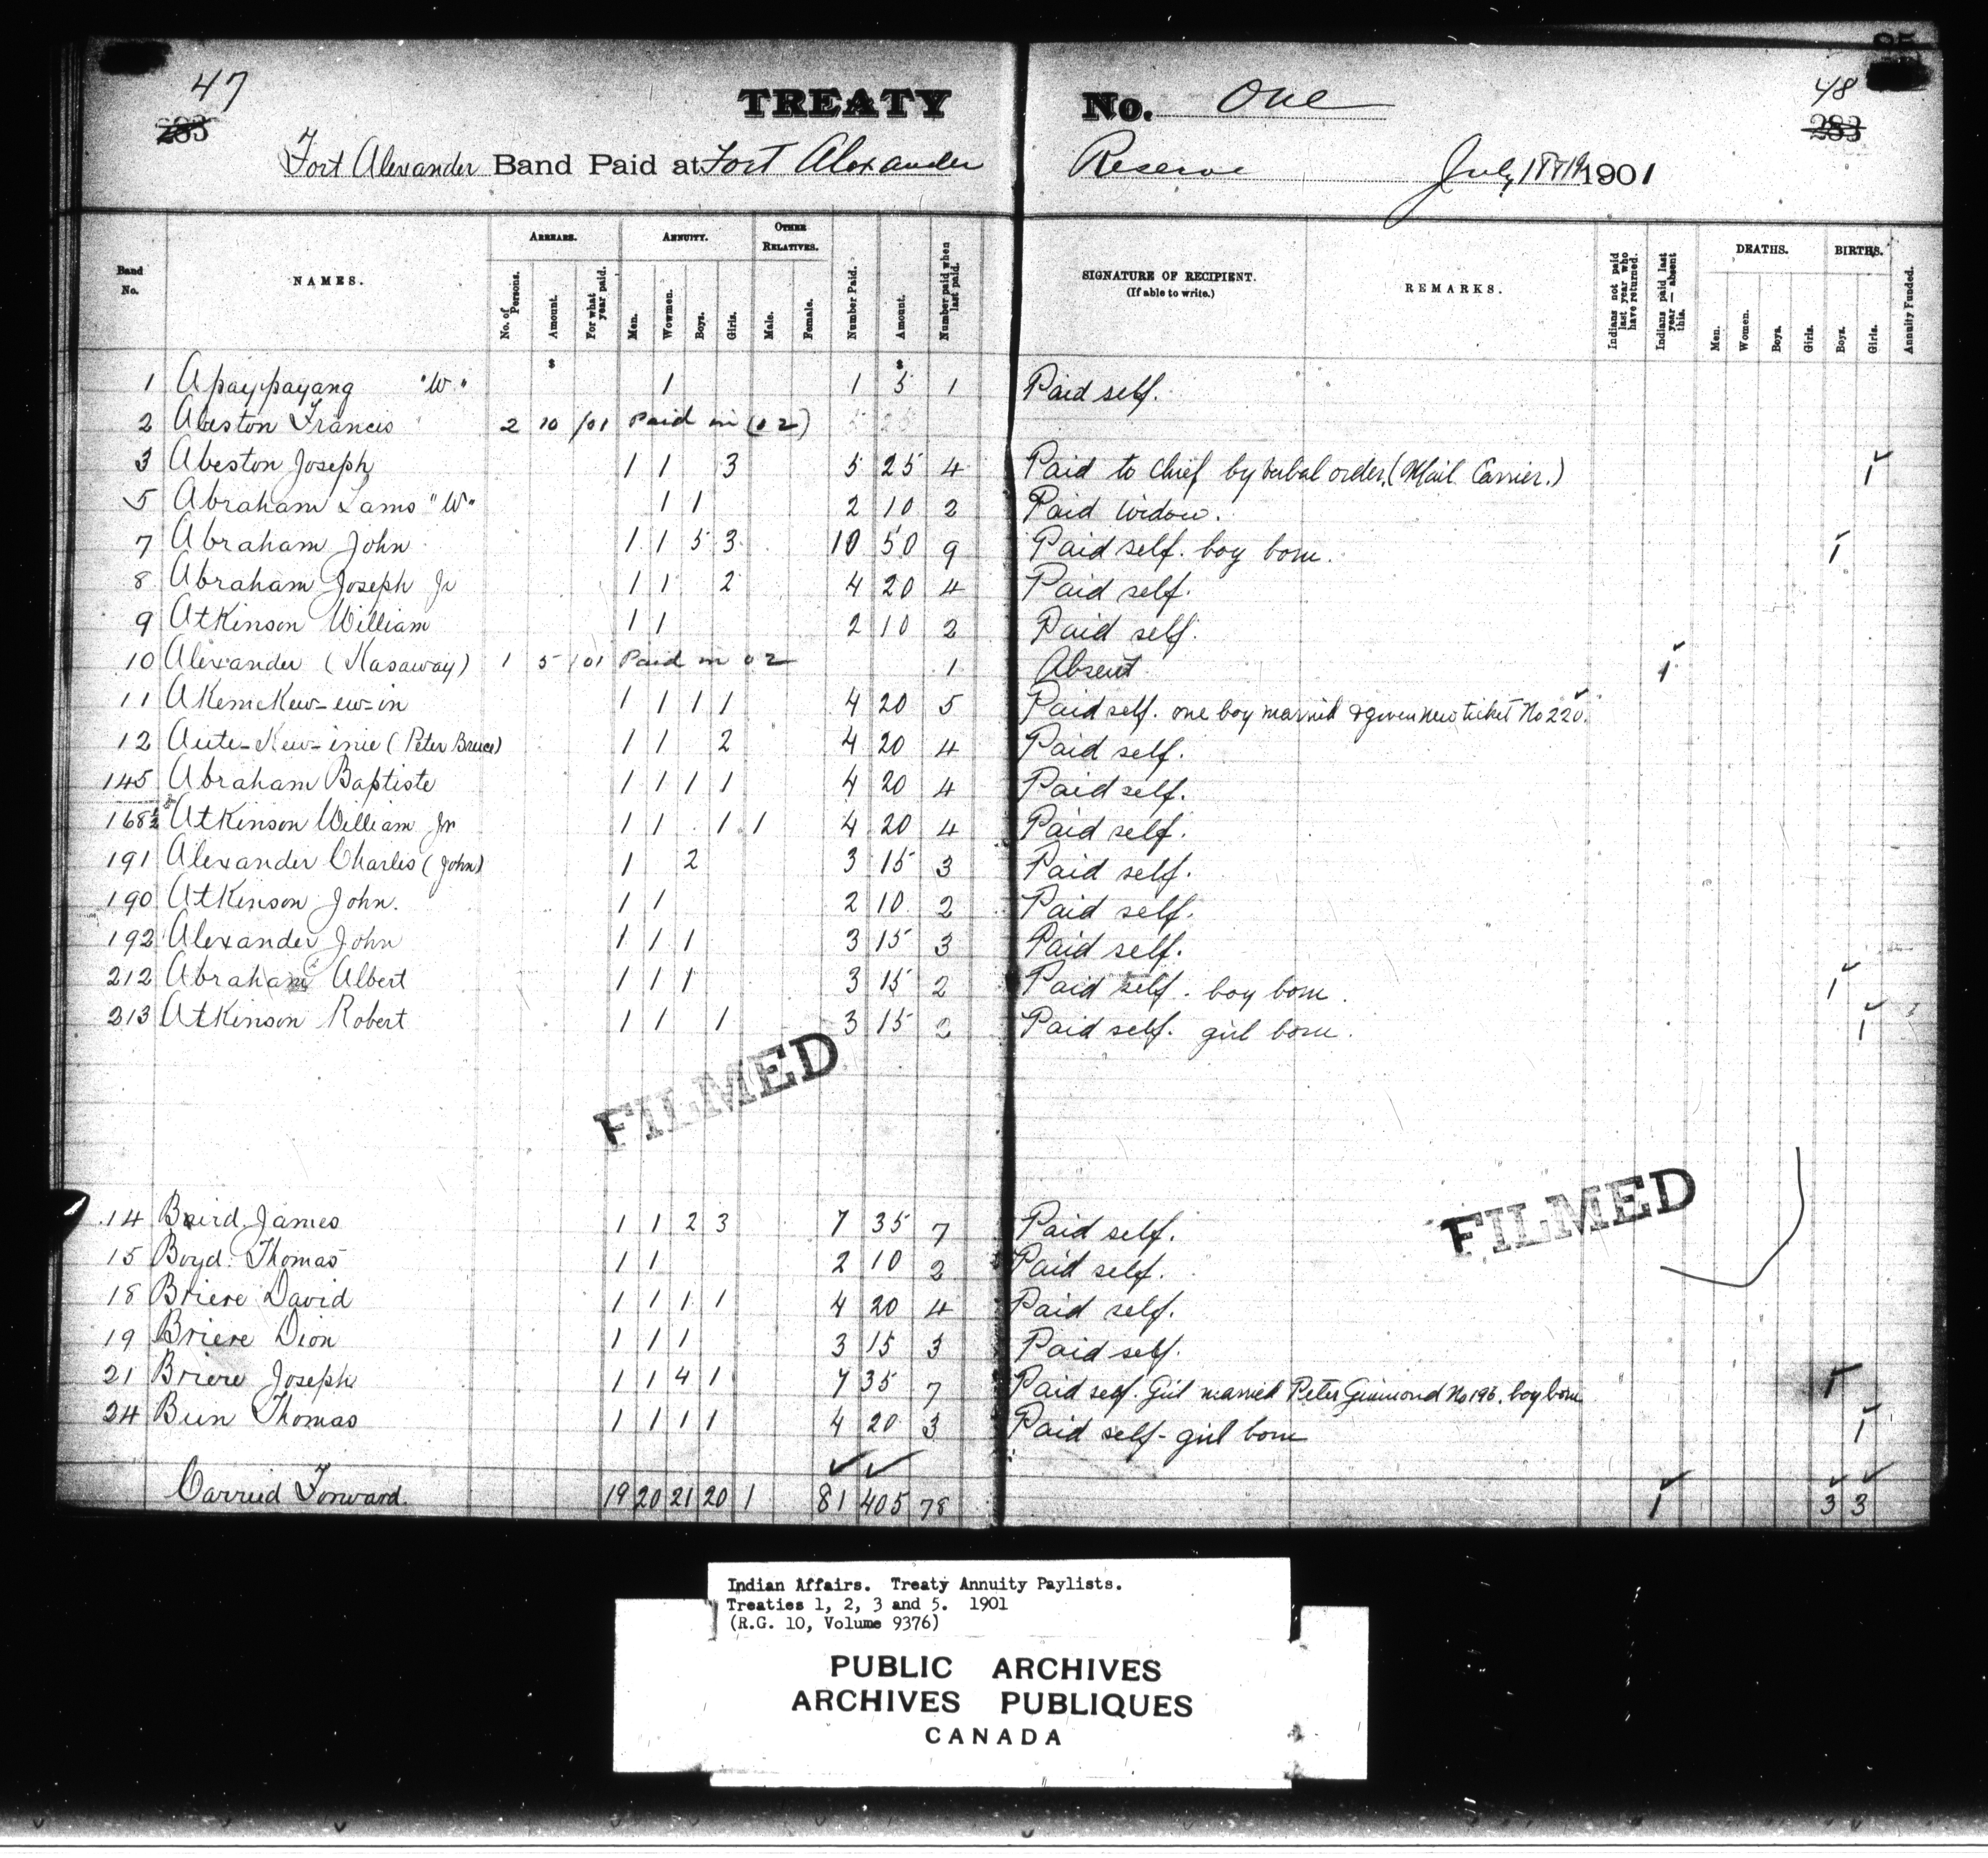 47
TREATY No. One
48
283
283
Fort Alexander Band Paid at Fort Alexander Reserve July 18 & 19 1901
Band No.
NAMES.
ARREARS.
No. of Persons.
Amount.
For what year paid.
ANNUITY.
Men.
Wowmen.
Boys.
Girls.
OTHER RELATIVES.
Male.
Female.
Number Paid.
Amount.
Number paid when last paid.
SIGNATURE OF RECIPIENT.
(If able to write.)
REMARKS.
Indians not paid last year who have returned.
Indians paid last year — absent this.
DEATHS.
Men.
Women.
Boys.
Girls.
BIRTHS.
Boys.
Girls.
Annuity Funded.
$ $
1 Apaypayang "W." 1 1 5 1 Paid self.
2 Abeston Francis 2 10 /01 Paid in (02)
3 Abeston Joseph 1 1 3 5 25 4 Paid to chief by verbal order. (Mail Carrier.) 1
5 Abraham Lams "W" 1 1 2 10 2 Paid widow.
7 Abraham John 1 1 5 3 10 50 9 Paid self. boy born. 1
8 Abraham Joseph Jr 1 1 2 4 20 4 Paid self.
9 Atkinson William 1 1 2 10 2 Paid self.
10 Alexander (Kasaway) 1 5 /01 Paid in 02 1 Absent 1
11 Akemekew-ew-in 1 1 1 1 4 20 5 Paid self. one boy married & given new ticket No 220.
12 (Peter Bruce) 1 1 2 4 20 4 Paid self.
145 Abraham Baptiste 1 1 1 1 4 20 4 Paid self.
168½ Atkinson William Jr 1 1 1 1 4 20 4 Paid self.
191 Alexander Charles (John) 1 2 3 15 3 Paid self.
190 Atkinson John. 1 1 2 10 2 Paid self.
192 Alexander John 1 1 1 3 15 3 Paid self.
212 Abraham Albert 1 1 1 3 15 2 Paid self. boy born. 1
213 Atkinson Robert 1 1 1 3 15 2 Paid self. girl born. 1
FILMED
FILMED
14 Baird James 1 1 2 3 7 35 7 Paid self.
15 Boyd Thomas 1 1 2 10 2 Paid self.
18 Briere David 1 1 1 1 4 20 4 Paid self.
19 Briere Dion 1 1 1 3 15 3 Paid self.
21 Briere Joseph 1 1 4 1 7 35 7 Paid self. Girl married Peter No 196. boy born 1
24 Thomas 1 1 1 1 4 20 3 Paid self - girl born 1
Carried Forward. 19 20 21 20 1 81 405 78 1 3 3
Indian Affairs. Treaty Annuity Paylists.
Treaties 1, 2, 3 and 5. 1901
(R.G. 10, Volume 9376)
PUBLIC ARCHIVES
ARCHIVES PUBLIQUES
CANADA